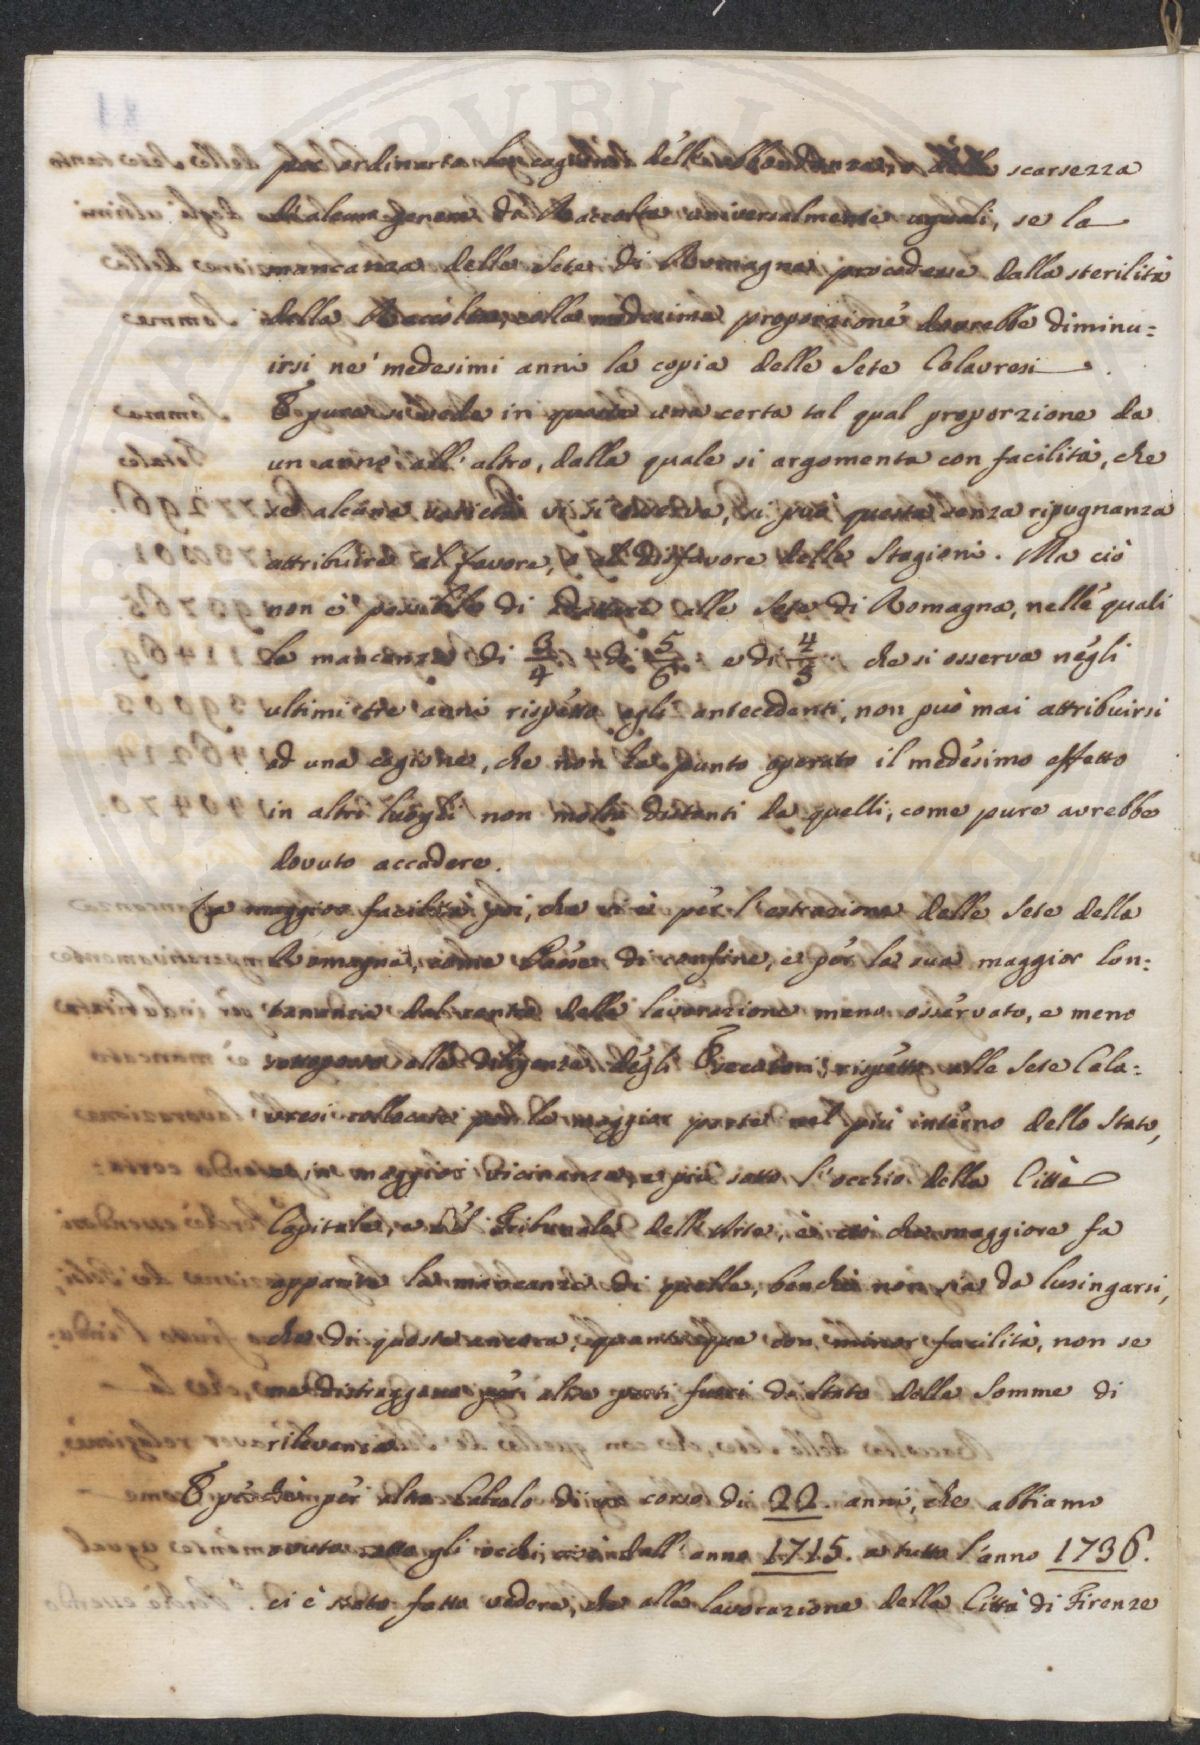 per ordinario le cagioni dell'abbondanza, o della scarsezza
di alcun genere di Raccolta universalmente uguali, se la
mancanza delle Sete di Romagna procedesse dalla sterilità
della Raccolta, colla medesima proporzione dovrebbe diminu=
irsi ne' medesimi anni la copia delle Sete Calavresi.
E pure si vede in queste una certa tal qual proporzione da
un anno all'altro, dalla quale si argomenta con facilità, che
se alcuna vi si osserva, si può questa senza ripugnanza
attribuire al favore, o al disfavore delle Stagioni. Ma ciò
non è possibile di alle Sete di Romagna, nelle quali
la mancanza di 3/4 di 5/6 e di 4/5 che si osserva negli
ultimi tre anni rispetto agli antecedenti, non può mai attribuirsi
ad una cagione, che non ha punto operato il medesimo effetto
in altri luoghi non molto distanti da quelli, come pure avrebbe
dovuto accadere.
La maggior facilità poi, che vi è per l'estrazione delle Sete della
Romagna, come Paese di confine, e per la sua maggior lon=
tananza dal centro della lavorazione meno osservato, e meno
sottoposto alle diligenze degli Esecutori, rispetto alle Sete Cala=
vresi collocate per la maggior parte nel più interno dello Stato,
e in maggior vicinanza, e più sotto l'occhio della Città
Capitale, e del Tribunale dell'Arte, è ciò che maggiore fa
apparire la mancanza di quelle, benchè non sia da lusingarsi,
che di queste ancora, quantunque con minor facilità, non se
ne distraggano per altre parti fuori di Stato delle Somme di
rilevanza.
E perchè per altro Calcolo di un corso di 22. anni, che abbiamo
avuto sotto gli occhi, cioè dall'anno 1715. a tutto l'anno 1736.
ci è stato fatto vedere, che alla lavorazione della Città di Firenze